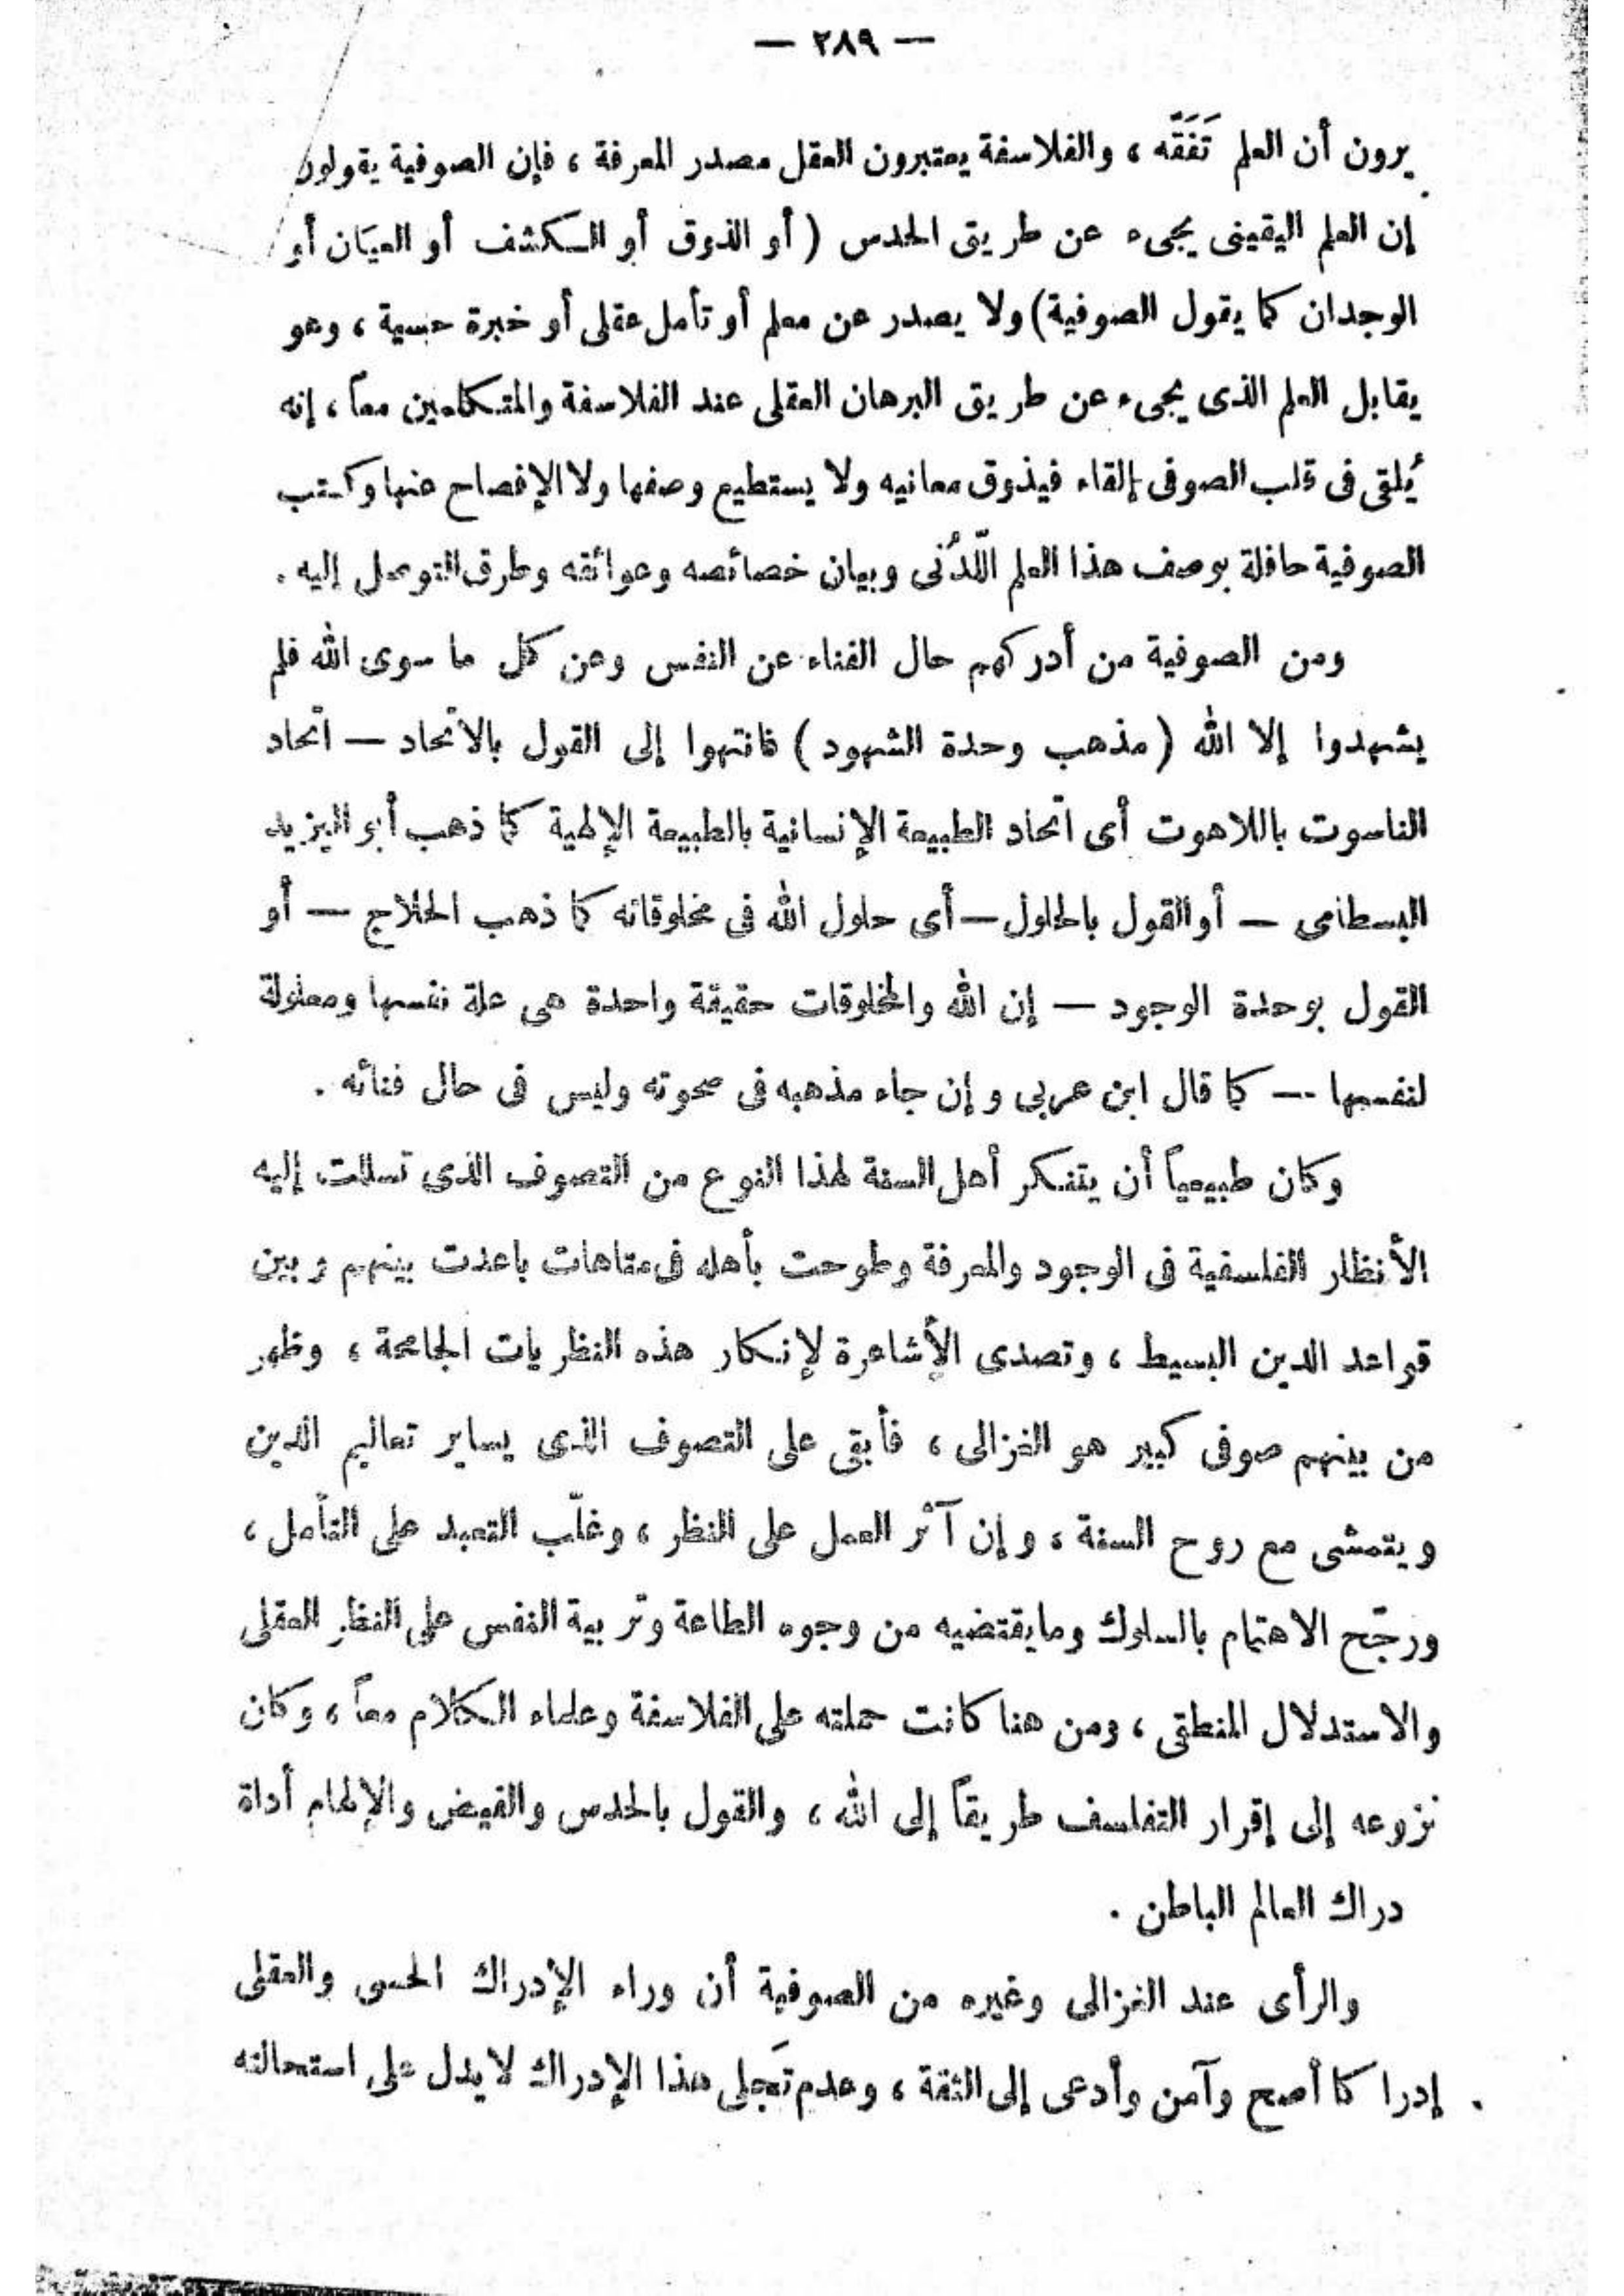 — ٢٨٩ —
يرون أن العلم تَفَقَّه ، والفلاسفة يعتبرون العقل مصدر المعرفة ، فإن الصوفية يقولون
إن العلم اليقينى يجىء عن طريق الحدس ( أو الذوق أو الكشف أو العيَان أو
الوجدان كما يقول الصوفية) ولا يصدر عن معلم أو تأمل عقلى أو خبرة حسية ، وهو
يقابل العلم الذى يجىء عن طريق البرهان العقلى عند الفلاسفة والمتكلمين معاً ، إنه
يُلقى فى قلب الصوفى إلقاء فيذوق معانيه ولا يستطيع وصفها ولا الإفصاح عنها وكتب
الصوفية حافلة بوصف هذا العلم اللّدُنى وبيان خصائصه وعوائقه وطرق التوصل إليه .
ومن الصوفية من أدركهم حال الفناء عن النفس وعن كل ما سوى الله فلم
يشهدوا إلا الله ( مذهب وحدة الشهود ) فانتهوا إلى القول بالاتحاد — اتحاد
الناسوت باللاهوت أى اتحاد الطبيعة الإنسانية بالطبيعة الإلهية كما ذهب أبو اليزيد
البسطامى — أو القول بالحلول — أى حلول الله فى مخلوقاته كما ذهب الحلاج — أو
القول بوحدة الوجود — إن الله والمخلوقات حقيقة واحدة هى علة نفسها ومعلولة
لنفسها — كما قال ابن عربى وإن جاء مذهبه فى صحوته وليس فى حال فنائه .
وكان طبيعياً أن يتنكر أهل السنة لهذا النوع من التصوف الذى تسللت إليه
الأنظار الفلسفية فى الوجود والمعرفة وطوحت بأهله فى متاهات باعدت بينهم وبين
قواعد الدين البسيط ، وتصدى الأشاعرة لإنكار هذه النظريات الجامحة ، وظهر
من بينهم صوفى كبير هو الغزالى ، فأبقى على التصوف الذى يساير تعاليم الدين
ويتمشى مع روح السنة ، وإن آثر العمل على النظر ، وغلّب التعبد على التأمل ،
ورجّح الاهتمام بالسلوك ومايقتضيه من وجوه الطاعة وتربية النفس على النظر العقلى
والاستدلال المنطقى ، ومن هنا كانت حملته على الفلاسفة وعلماء الكلام معاً ، وكان
نزوعه إلى إقرار التفلسف طريقاً إلى الله ، والقول بالحدس والفيض والإلهام أداة
دراك العالم الباطن .
والرأى عند الغزالى وغيره من الصوفية أن وراء الإدراك الحسى والعقلى
إدراكا أصح وآمن وأدعى إلى الثقة ، وعدم تَجلى هذا الإدراك لا يدل على استحالته